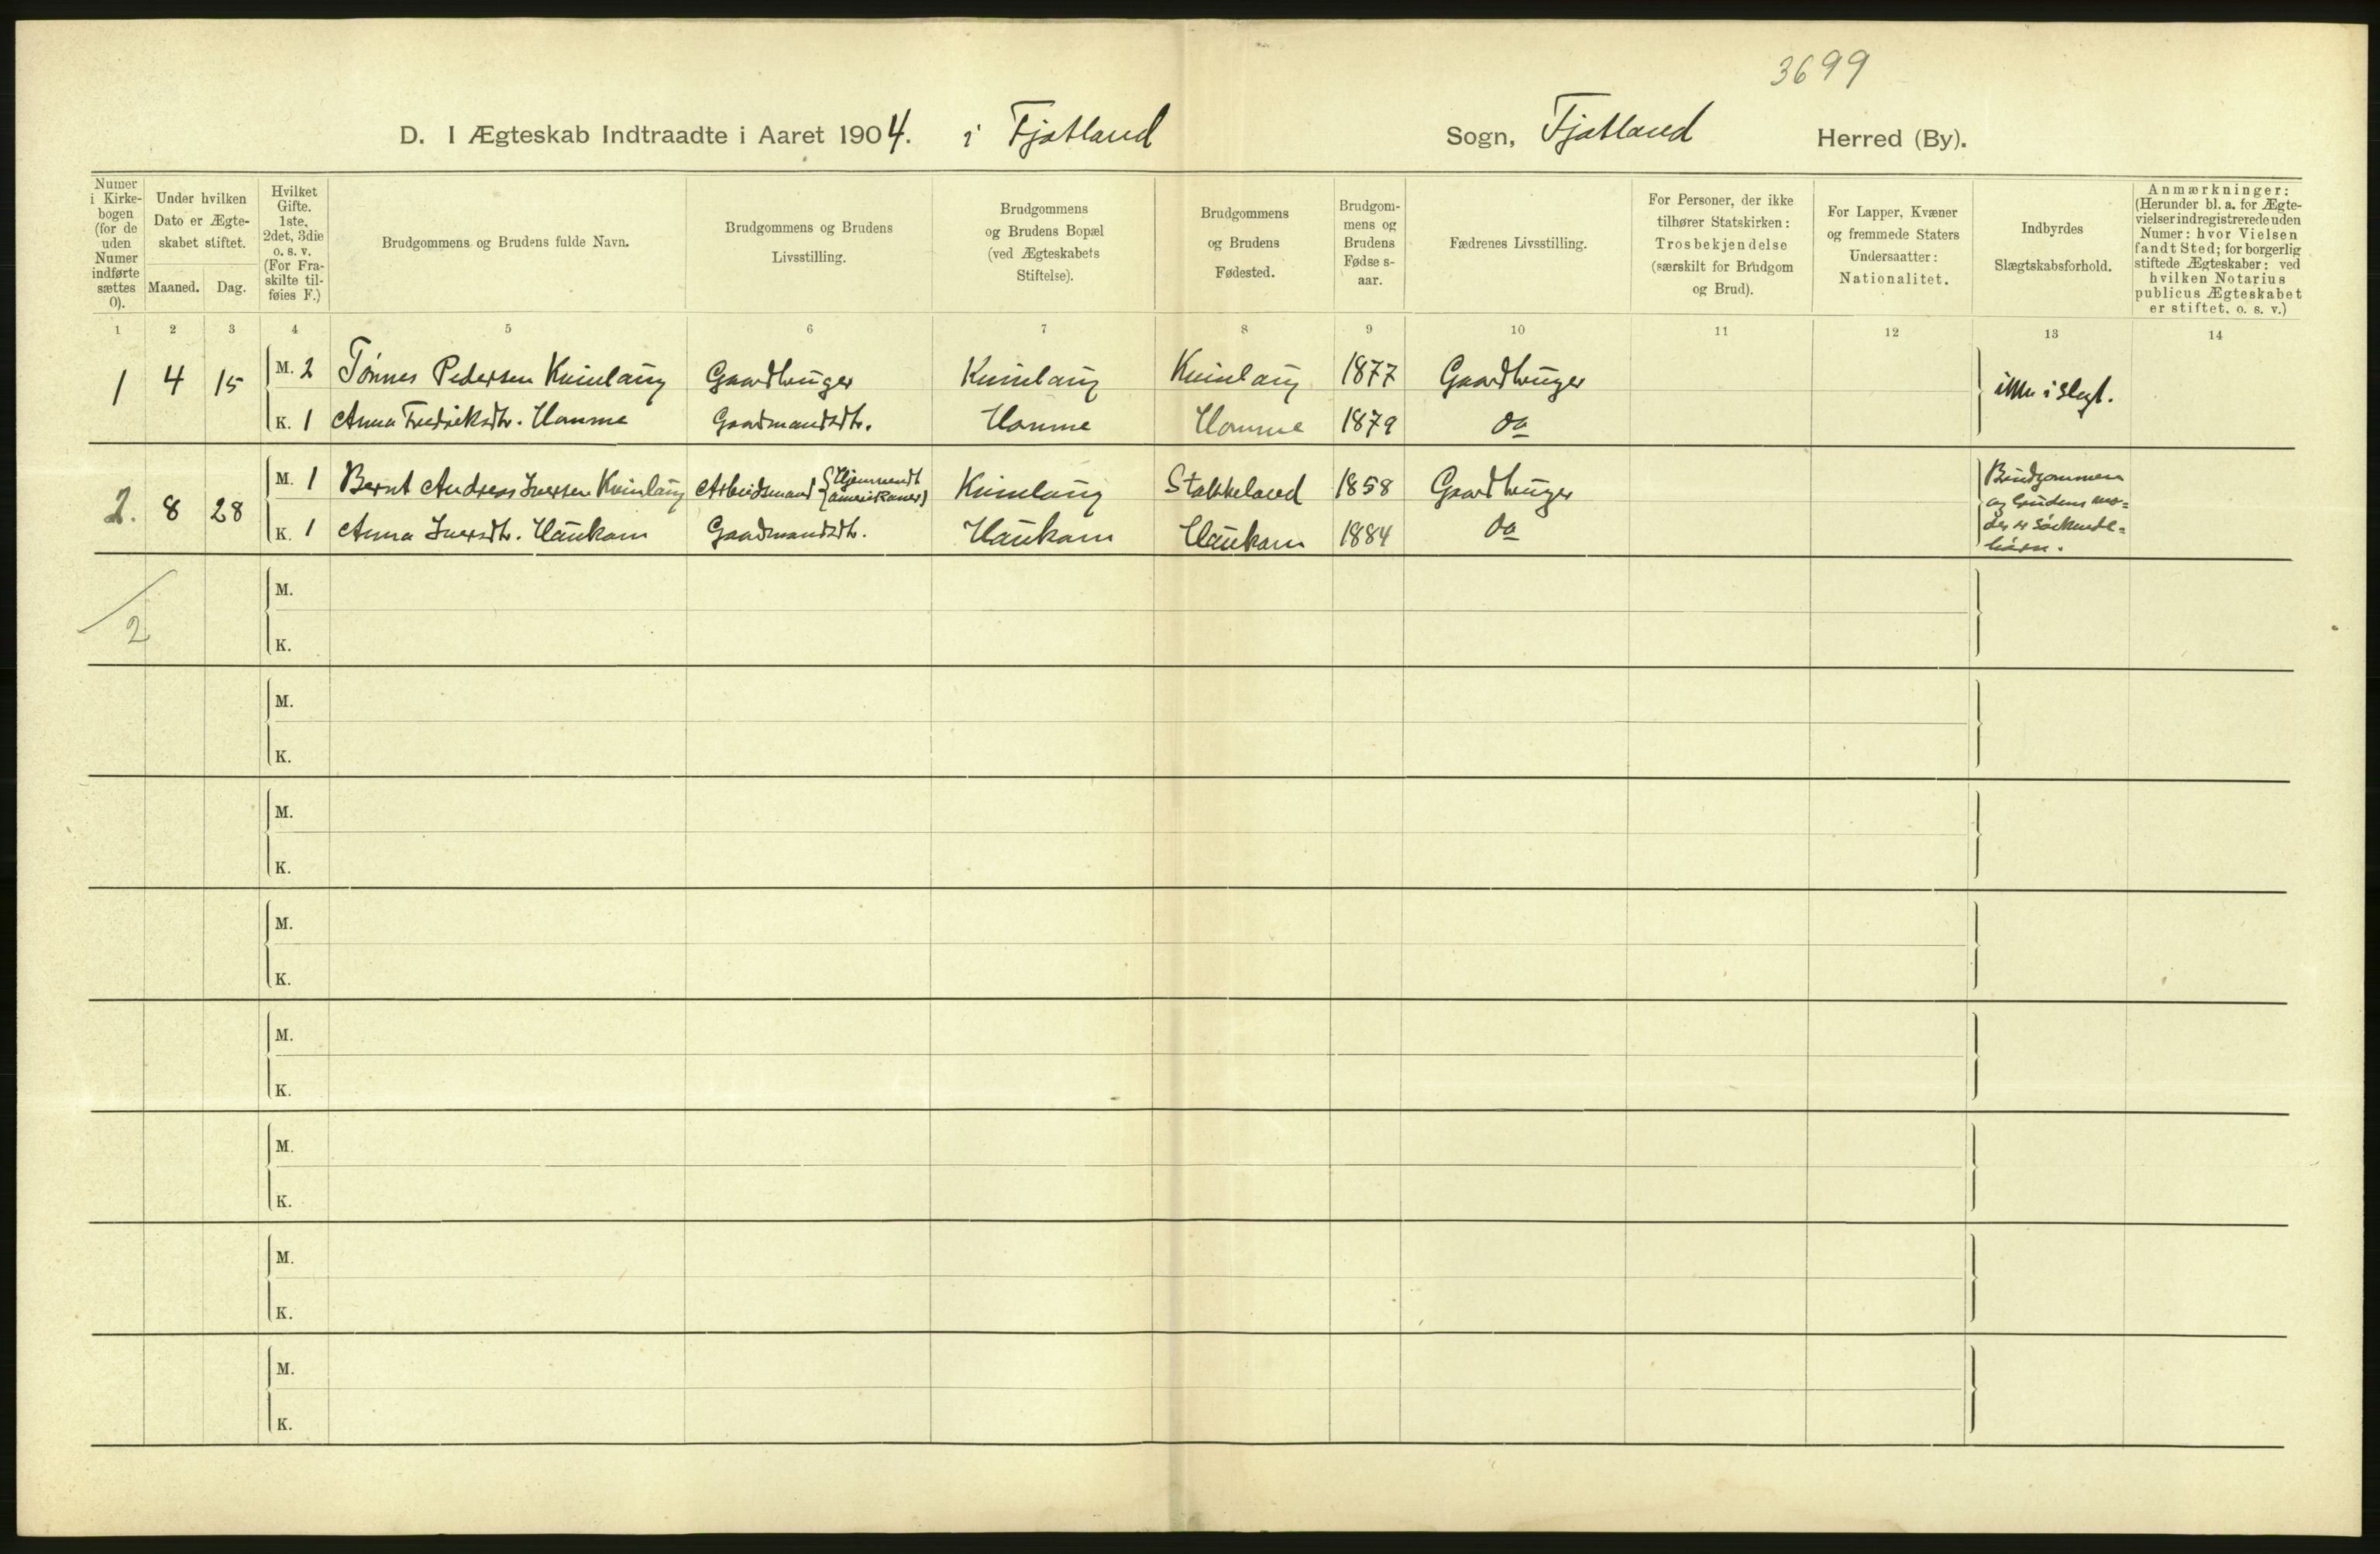 3699
D. I Ægteskab Indtraadte i Aaret 1904. i Fjotland Sogn, Fjotland Herred (By).
Numer i Kirke-bogen (for de uden Numer indførte sættes 0).
Under hvilken Dato er Ægte-skabet stiftet.
Maaned. Dag.
Hvilket Gifte. 1ste, 2det, 3die o. s. v. (For Fra-skilte til-føies F.)
Brudgommens og Brudens fulde Navn.
Brudgommens og Brudens Livsstilling.
Brudgommens og Brudens Bopæl (ved Ægteskabets Stiftelse).
Brudgommens og Brudens Fødested.
Brudgom-mens og Brudens Fødse s-aar.
Fædrenes Livsstilling.
For Personer, der ikke tilhører Statskirken: Trosbekjendelse (særskilt for Brudgom og Brud).
For Lapper, Kvæner og fremmede Staters Undersaatter: Nationalitet.
Indbyrdes Slægtskabsforhold.
Anmærkninger: (Herunder bl. a. for Ægte-vielser indregistrerede uden Numer: hvor Vielsen fandt Sted; for borgerlig stiftede Ægteskaber: ved hvilken Notarius publicus Ægteskabet er stiftet. o. s. v.)
1 2 3 4 5 6 7 8 9 10 11 12 13 14
1 4 15 M. 2 Tönnes Pedersen Kvinlaug Gaardbruger Kvinlaug Kvinlaug 1877 Gaardbruger ikke i Slegt.
K. 1 Anna Fredriksdtr. Homme Gaardmandsdtr. Homme Homme 1879 do
2. 8 28 M. 1 Bernt Andreas Iversen Kvinlaug Arbeidsmand (Hjemvendt amerikaner) Kvinlaug Stakkeland 1858 Gaardbruger
K. 1 Anna Iversdtr. Haukom Gaardmandsdtr. Haukom Haukom 1884 do
Brudgommen
og brudens mo=
der er Söskende=
börn.
2
M.
K.
M.
K.
M.
K.
M.
K.
M.
K.
M.
K.
M.
K.
M.
K.